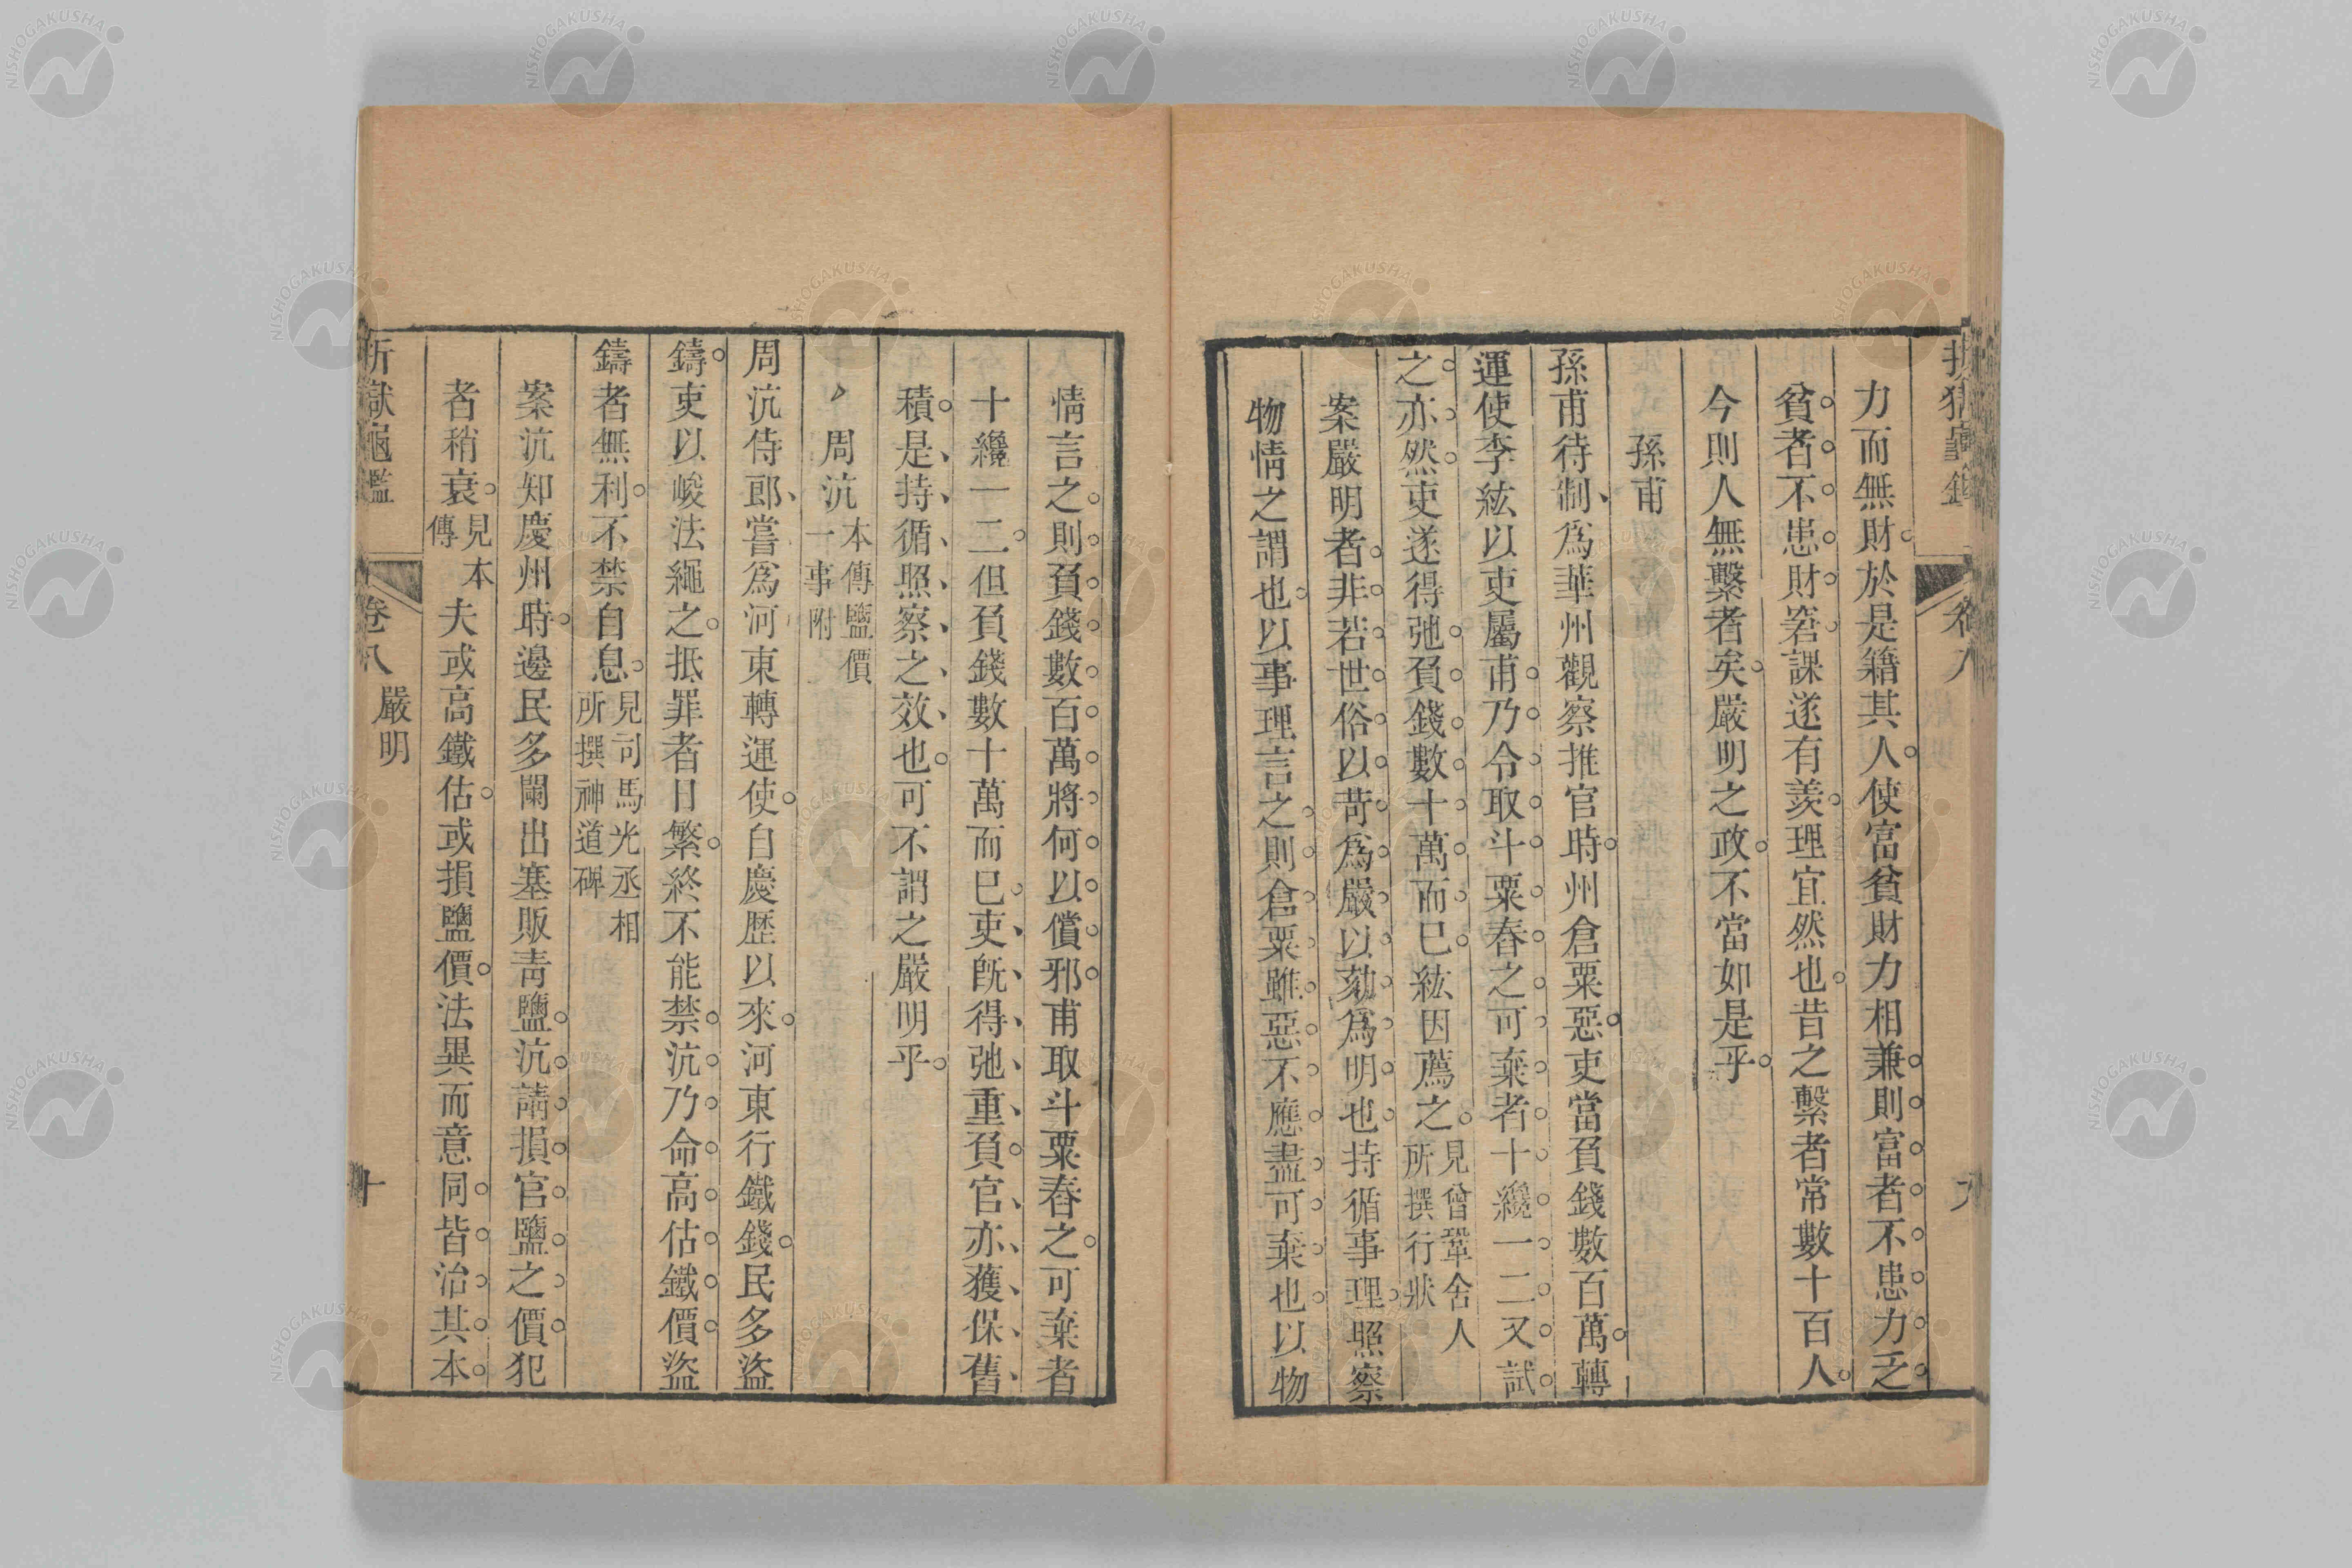 折獄龜鑑 卷八 九
力而無財於是籍其人使富貧財力相兼則富者不患力乏
貧者不患財窘課遂有羨理宜然也昔之繫者常數十百人
今則人無繫者矣嚴明之政不當如是乎
孫甫
孫甫待制爲華州觀察推官時州倉粟惡吏當負錢數百萬轉
運使李紘以吏屬甫乃令取斗粟舂之可棄者十纔一二又試
之亦然吏遂得弛負錢數十萬而已紘因薦之見曾鞏舍人所撰行狀
案嚴明者非若世俗以苛爲嚴以刻爲明也持循事理照察
物情之謂也以事理言之則倉粟雖惡不應盡可棄也以物
情言之則負錢數百萬將何以償邪甫取斗粟舂之可棄者
十纔一二但負錢數十萬而已吏旣得弛重負官亦獲保舊
積是持循照察之效也可不謂之嚴明乎
周沆本傳鹽價一事附
周沆侍郎嘗爲河東轉運使自慶歷以來河東行鐵錢民多盜
鑄吏以峻法繩之抵罪者日繁終不能禁沆乃命高估鐵價盜
鑄者無利不禁自息見司馬光丞相所撰神道碑
案沆知慶州時邊民多闌出塞販靑鹽沆請損官鹽之價犯
者稍衰見本傳夫或高鐵估或損鹽價法異而意同皆治其本
折獄龜鑑 卷八 嚴明 十
NISHOGAKUSHA